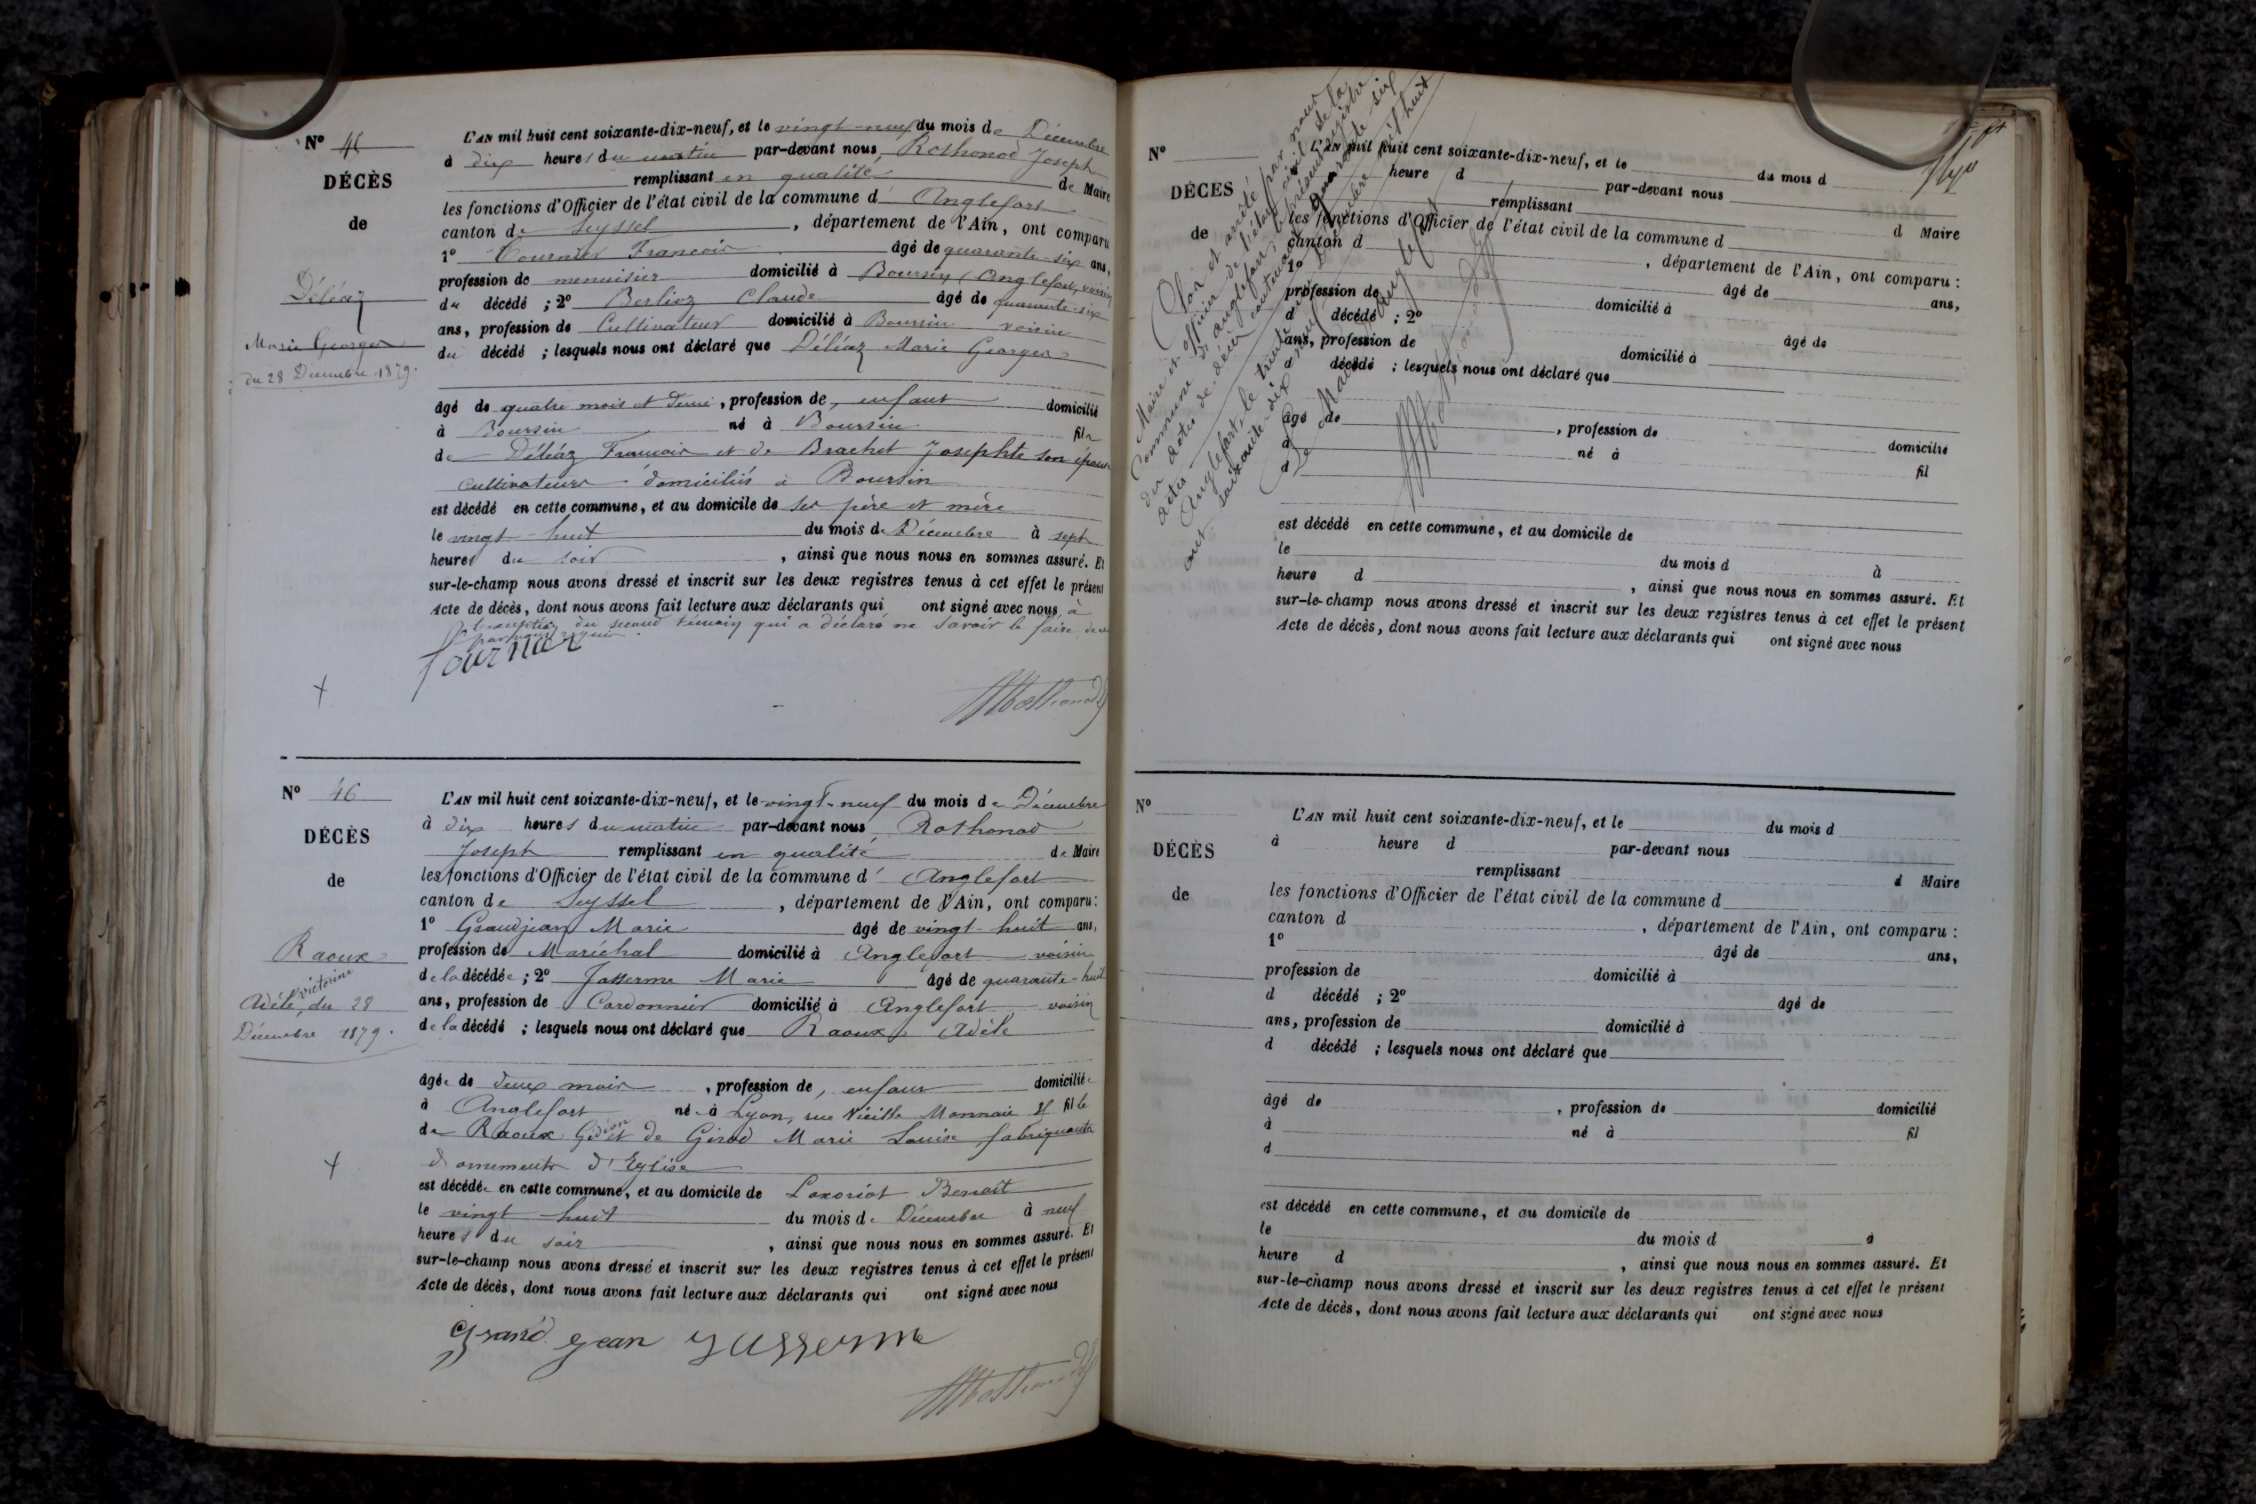 N° 45
DÉCÈS
de
Déléaz
Marie Georges
du 28 Décembre 1879.
L'AN mil huit cent soixante-dix-neuf, et le vingt-neuf du mois de Décembre
à dix heures du matin par-devant nous Rothonod Joseph
remplissant en qualité de Maire
les fonctions d'Officier de l'état civil de la commune d'Anglefort
canton de Seyssel, département de l'Ain, ont comparu
1° Tournier François âgé de quarante-six ans,
profession de menuisier domicilié à Boursin, (Anglefort) voisin
du décédé ; 2° Berlioz Claude âgé de quarante-six
ans, profession de Cultivateur domicilié à Boursin voisin
du décédé ; lesquels nous ont déclaré que Déléaz Marie Georges
âgé de quatre mois et demi, profession de, enfant domicilié
à Boursin né à Boursin fils
de Déléaz François et de Brachet Josephte son épouse
cultivateurs domiciliés à Boursin
est décédé en cette commune, et au domicile de ses père et mère
le vingt-huit du mois de Décembre à sept
heures du soir, ainsi que nous nous en sommes assuré. Et
sur-le-champ nous avons dressé et inscrit sur les deux registres tenus à cet effet le présent
Acte de décès, dont nous avons fait lecture aux déclarants qui ont signé avec nous, à
l'exception du second témoin qui a déclaré ne savoir le faire de ce
par nous requis.
Rothonod
N° 46
DÉCÈS
de
Raoux
Adèle, victorine du 28
Décembre 1879.
L'AN mil huit cent soixante-dix-neuf, et le vingt-neuf du mois de Décembre
à dix heures du matin par-devant nous Rothonod
Joseph remplissant en qualité de Maire
les fonctions d'Officier de l'état civil de la commune d'Anglefort
canton de Seyssel, département de l'Ain, ont comparu :
1° Grandjean Marie âgé de vingt-huit ans,
profession de Maréchal domicilié à Anglefort voisin
de la décédée ; 2° Jasserme Marie âgé de quarante-huit
ans, profession de Cordonnier domicilié à Anglefort voisin
de la décédé ; lesquels nous ont déclaré que Raoux Adèle
âgée de deux mois, profession de, enfant domiciliée
à Anglefort née à Lyon, rue Vieille Monnaie fille
de Raoux Gédéon et de Girod Marie Louise fabriquants
d'ornements d'Eglise
est décédée en cette commune, et au domicile de Benoît
le vingt-huit du mois de Décembre à neuf
heures du soir, ainsi que nous nous en sommes assuré. Et
sur-le-champ nous avons dressé et inscrit sur les deux registres tenus à cet effet le présent
Acte de décès, dont nous avons fait lecture aux déclarants qui ont signé avec nous
Grand jean Jasserme
Rothonod
Clos et arrêté par nous
Maire et officier de l'état civil de la
Commune d'anglefort le présent registre
des actes de décès contenant quarante six
actes
Anglefort, le trente un Décembre mil huit
cent soixante-dix neuf
Le Maire
Rothonod
N°
DÉCÈS
de
L'AN mil huit cent soixante-dix-neuf, et le du mois d
heure d par-devant nous
remplissant d Maire
les fonctions d'Officier de l'état civil de la commune d
canton d , département de l'Ain, ont comparu :
1° âgé de ans,
profession de domicilié à
d décédé ; 2° âgé de
ans, profession de domicilié à
d décédé ; lesquels nous ont déclaré que
âgé de , profession de domicilié
à né à fil
d
est décédé en cette commune, et au domicile de
le du mois d à
heure d , ainsi que nous nous en sommes assuré. Et
sur-le-champ nous avons dressé et inscrit sur les deux registres tenus à cet effet le présent
Acte de décès, dont nous avons fait lecture aux déclarants qui ont signé avec nous
N°
DÉCÈS
de
L'AN mil huit cent soixante-dix-neuf, et le du mois d
à heure d par-devant nous
remplissant d Maire
les fonctions d'Officier de l'état civil de la commune d
canton d , département de l'Ain, ont comparu :
1° âgé de ans,
profession de domicilié à
d décédé ; 2° âgé de
ans, profession de domicilié à
d décédé ; lesquels nous ont déclaré que
âgé de , profession de domicilié
à né à fil
d
est décédé en cette commune, et au domicile de
le du mois d à
heure d , ainsi que nous nous en sommes assuré. Et
sur-le-champ nous avons dressé et inscrit sur les deux registres tenus à cet effet le présent
Acte de décès, dont nous avons fait lecture aux déclarants qui ont signé avec nous